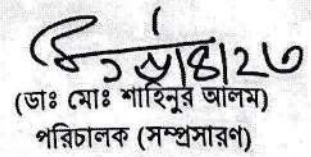 ১৯/৪/২৩
(ডাঃ মোঃ শাহিনুর আলম)
পরিচালক (সম্প্রসারণ)